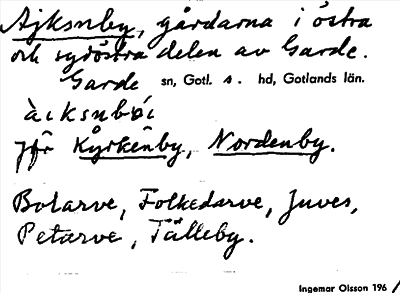 Ajksnby, gårdarna i östra
och sydöstra delen av Garde.
Garde sn, Gotl. s. hd, Gotlands län.
àcksnbói
jfr Kyrkenby, Nordenby.
Botarve, Folkedarve, Juves,
Petarve, Tälleby.
Ingemar Olsson 196